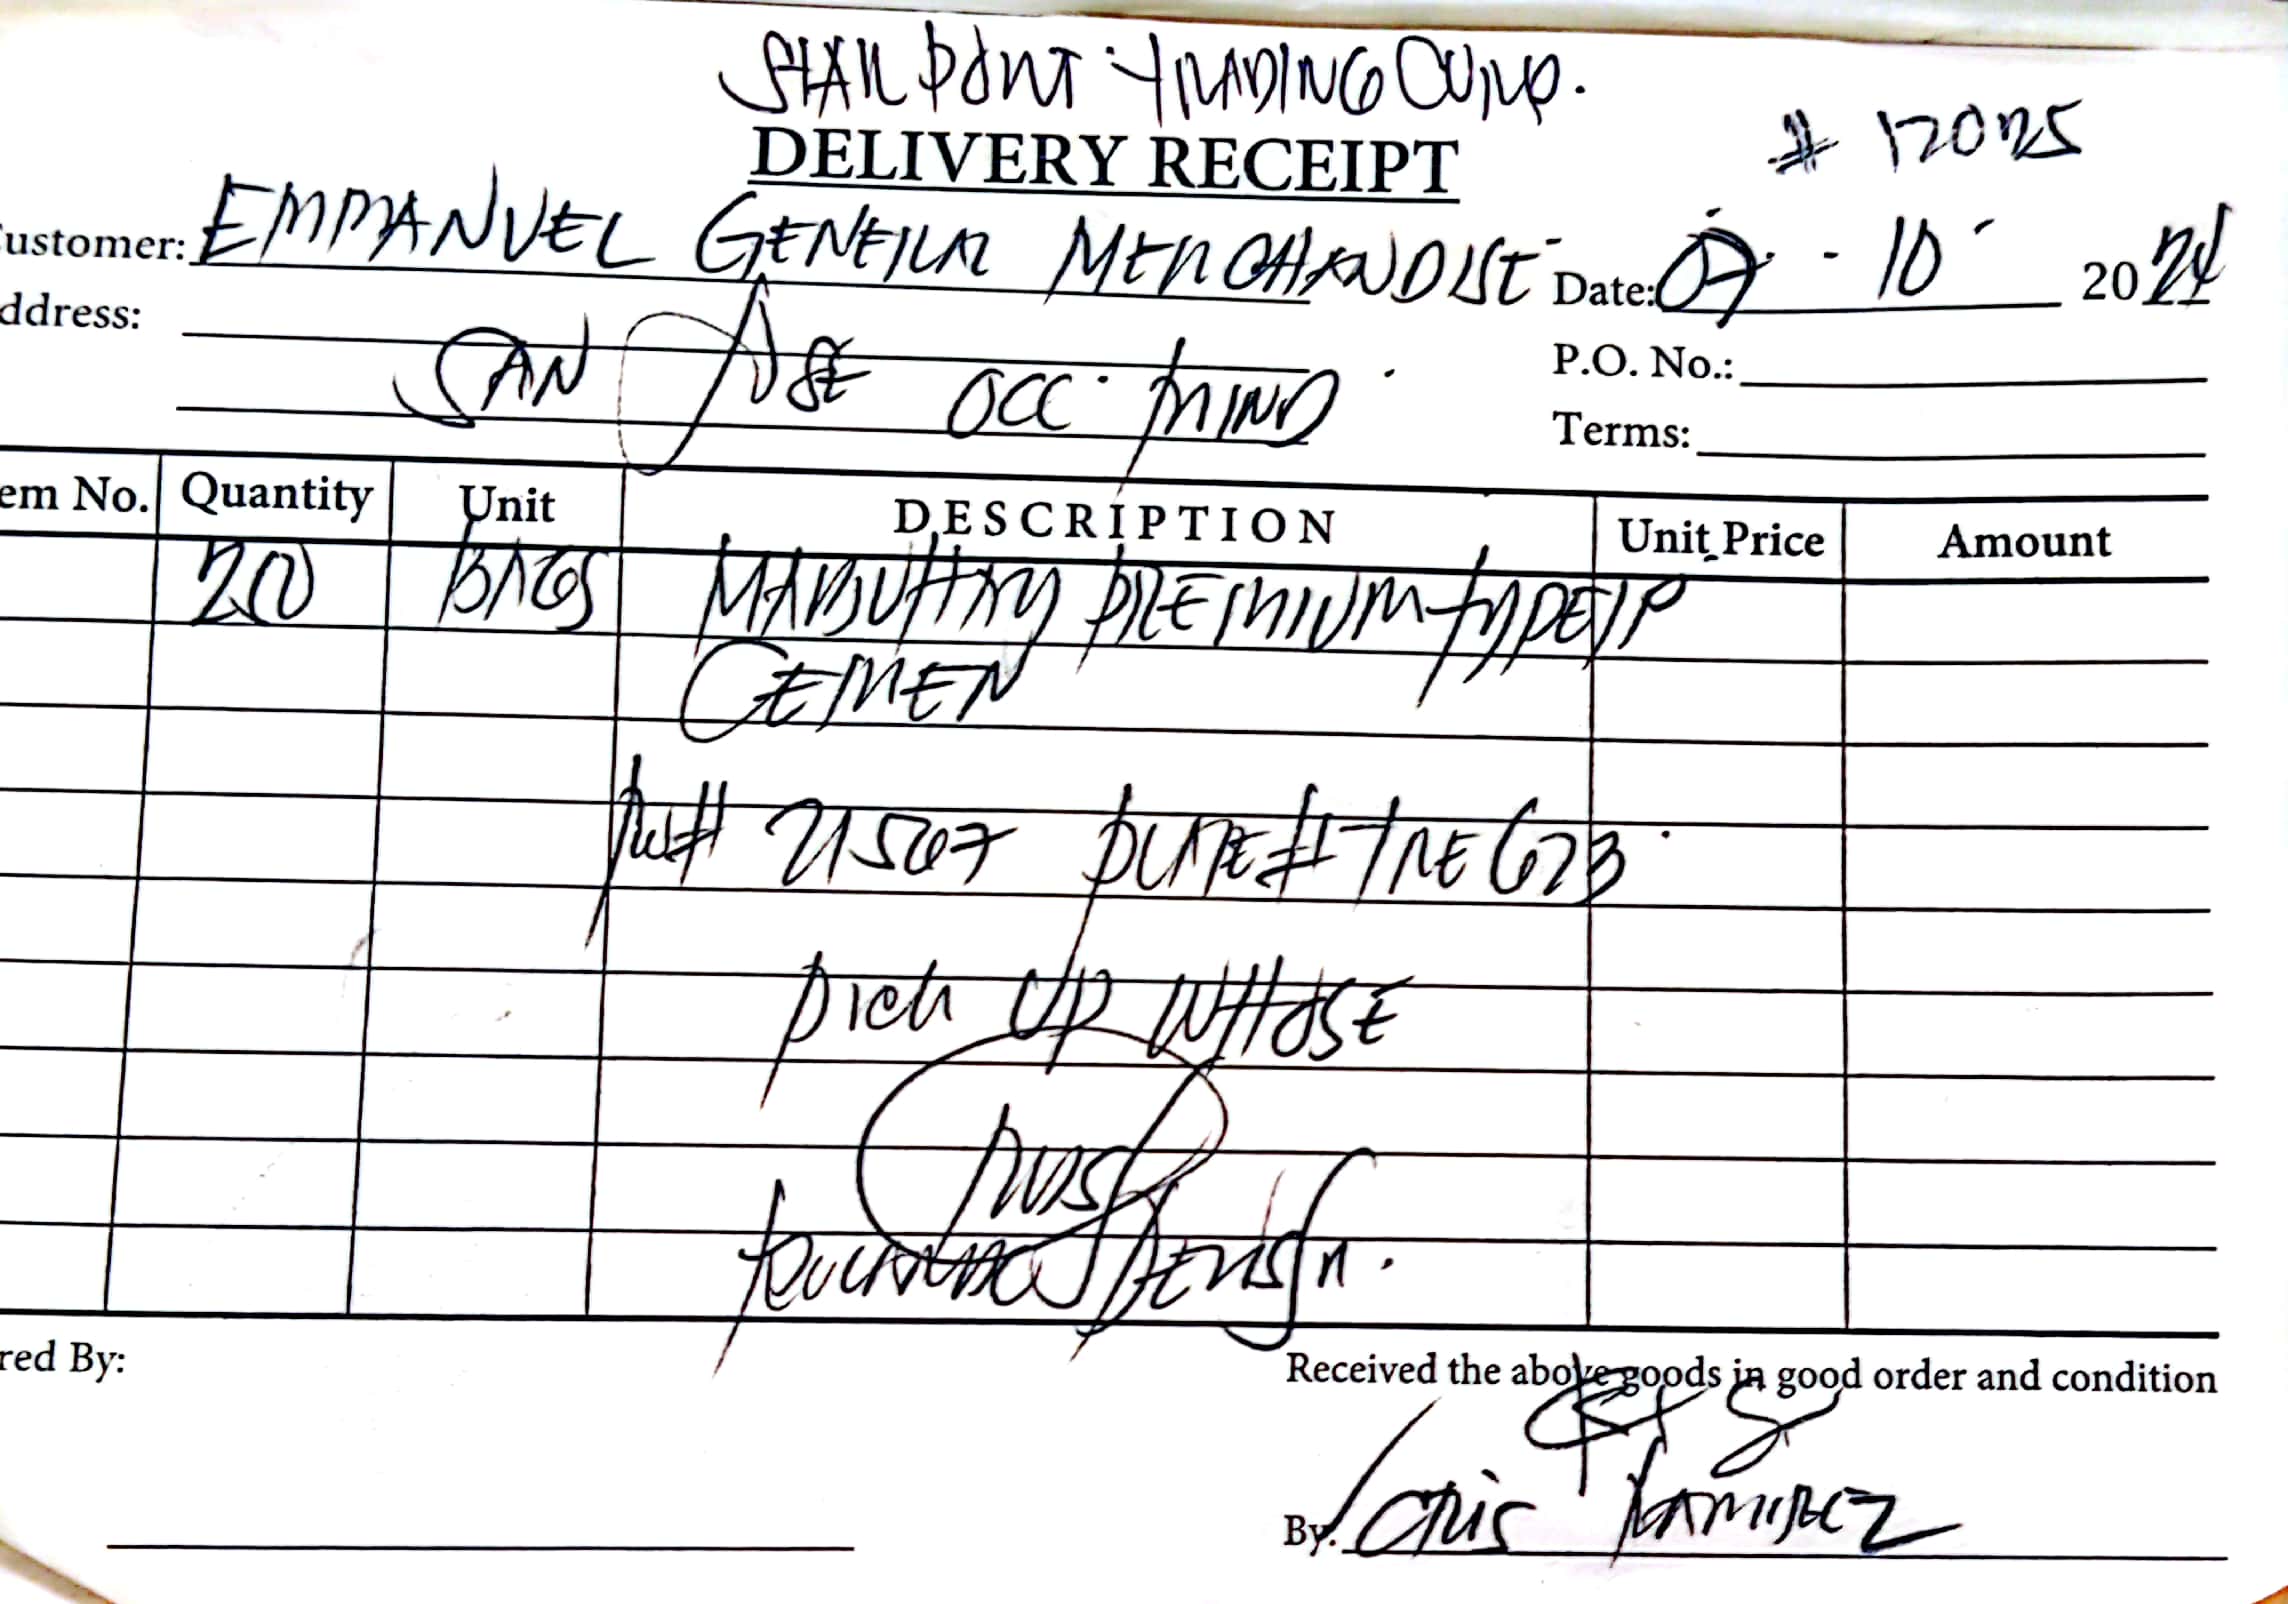 STAR POINT TRADING CORP.
DELIVERY RECEIPT
# 17025
ustomer: EMMANUEL GENERAL MERCHANDISE Date: 07 - 10 2024
ddress: SAN JOSE OCC. MIND.
P.O. No.:
Terms:
em No. Quantity Unit DESCRIPTION Unit Price Amount
200 BAGS MABUHAY PREMIUM TYPE 1P
CEMEN
PW# 21567 PLATE# TNE 673
PICK UP WHOSE
red By:
Received the above goods in good order and condition
By: CRIS RAMIREZ